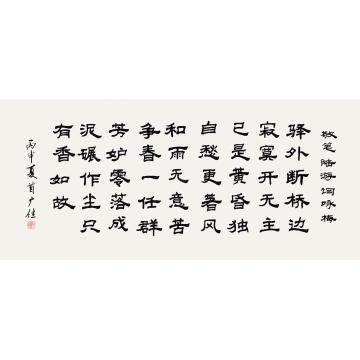 敬笔陆游词咏梅
驿外断桥边
寂寞开无主
已是黄昏独
自愁更著风
和雨无意苦
争春一任群
芳妒零落成
泥碾作尘只
有香如故
丙申夏首